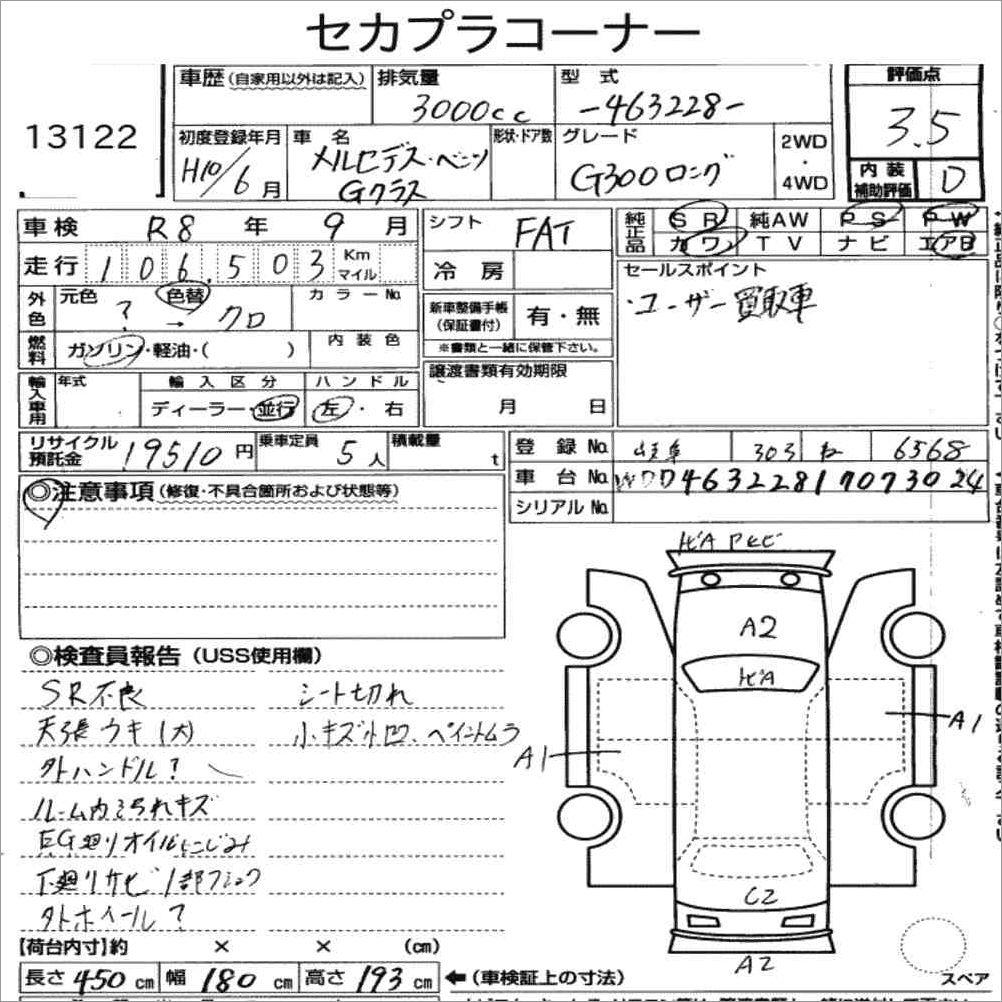 セカプラコーナー
13122
車歴 (自家用以外は記入) 排気量 3000cc 型式 -463228- 評価点 3.5
初度登録年月 H10/6月 車名 メルセデス・ベンツ Gクラス 形状・ドア数 グレード G300 ロング 2WD・4WD 内装補助評価 D
車検 R8年 9月 シフト FAT 純正品 SR 純AW PS PW
カワ TV ナビ エアB
走行 106,503 Km マイル 冷房 セールスポイント
・ユーザー買取車
外色 元色 ? → 色替 クロ カラーNo. 新車整備手帳 (保証書付) 有・無
※書類と一緒に保管下さい。
燃料 ガソリン・軽油・( ) 内装色
譲渡書類有効期限 月 日
輸入車用 年式 輸入区分 ディーラー・並行 ハンドル 左・右
リサイクル預託金 19510円 乗車定員 5人 積載量 t
登録No. 岐阜 303 ね 6568
車台No. WDD46322817073024
シリアルNo.
◎注意事項 (修復・不具合箇所および状態等)
ビA アセビ
A2
ビA
A1
A1
C2
A2
◎検査員報告 (USS使用欄)
SR不良 シート切れ
天張ウキ(大) 小キズ小凹、ペイントムラ
外ハンドル?
ルーム内よごれキズ
EG廻りオイルにじみ
下廻りサビ 1部フショク
外ホイール?
【荷台内寸】約 × × (cm)
長さ 450 cm 幅 180 cm 高さ 193 cm ←(車検証上の寸法)
スペア